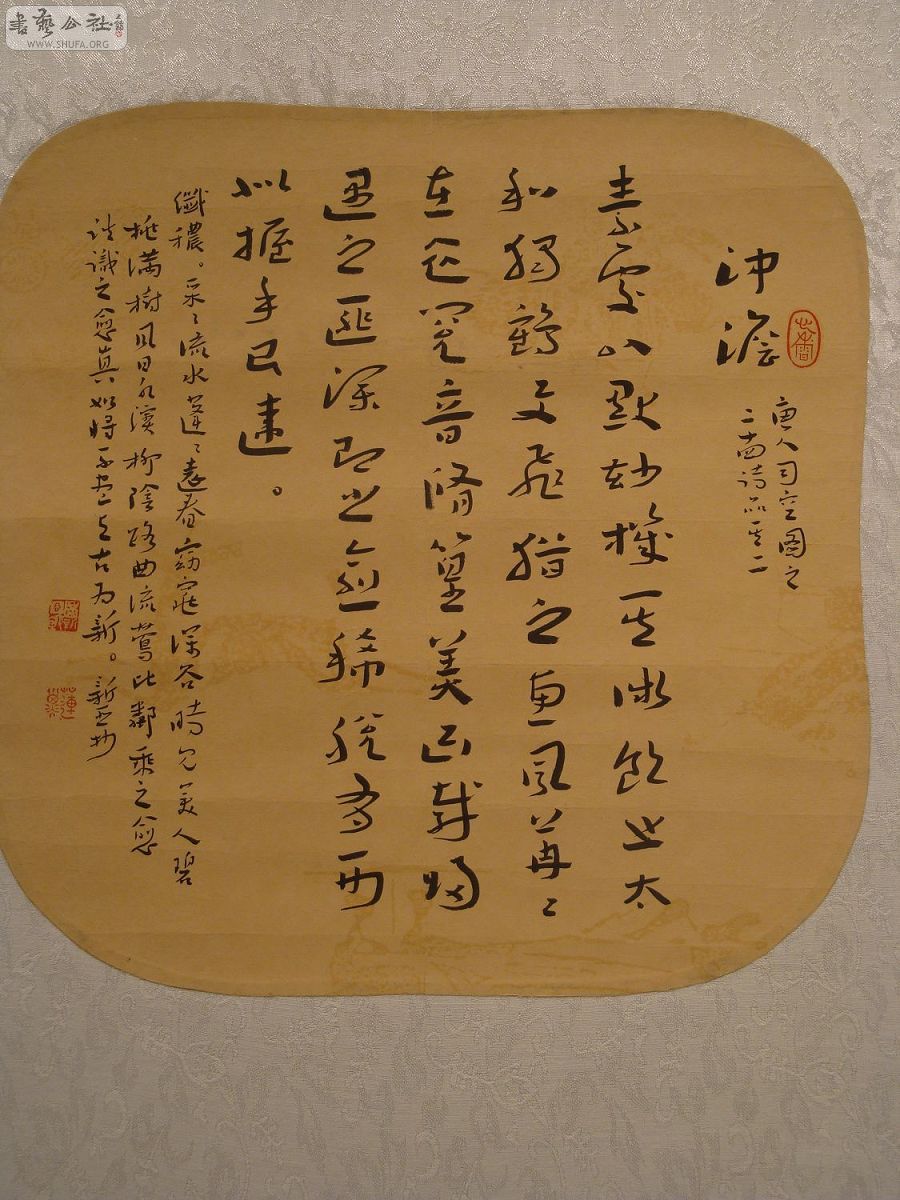 書藝公社
WWW.SHUFA.ORG
沖澹
唐人司空圖之
二十四詩品其二
素處以默妙機其微飲之太
和獨鶴与飛猶之惠風苒〻
在衣閱音脩篁美曰載歸
遇之匪深即之愈稀脫有形
似握手已違。
纖穠。采〻流水蓬〻遠春窈窕深谷時見美人碧
桃滿樹風日水濱柳陰路曲流鶯比鄰乘之愈
往識之愈真如將不盡与古为新。新亞抄